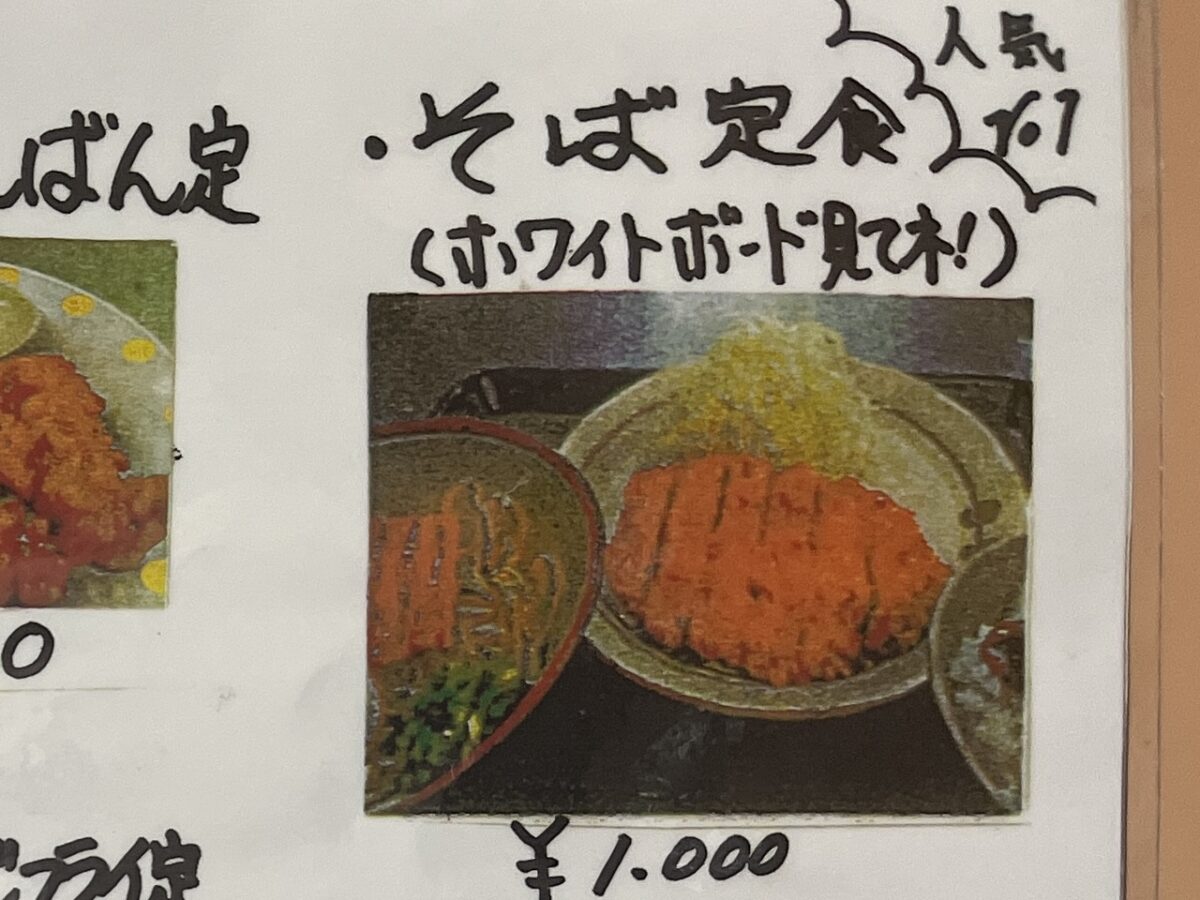 人気
No.1
・そば定食
(ホワイトボード見てネ!)
¥1.000
ばん定
0
フライ定